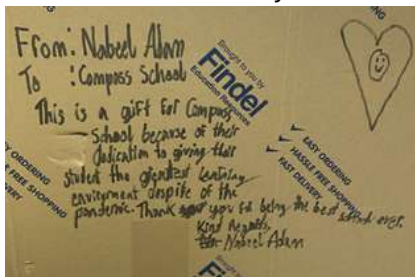 From: Nabeel Adam
To : Compass School
This is a gift for Compass
School because of their
dedication to giving their
student the greatest learning
envierment despite of the
pandemic. Thank you for being the best school ever.
Kind Regards,
Nabeel Adam
Brought to you by
Findel
Education Resources
EASY ORDERING
HASSLE FREE SHOPPING
FAST DELIVERY
ORDERING
FREE SHOPPING
Brought to you by
Findel